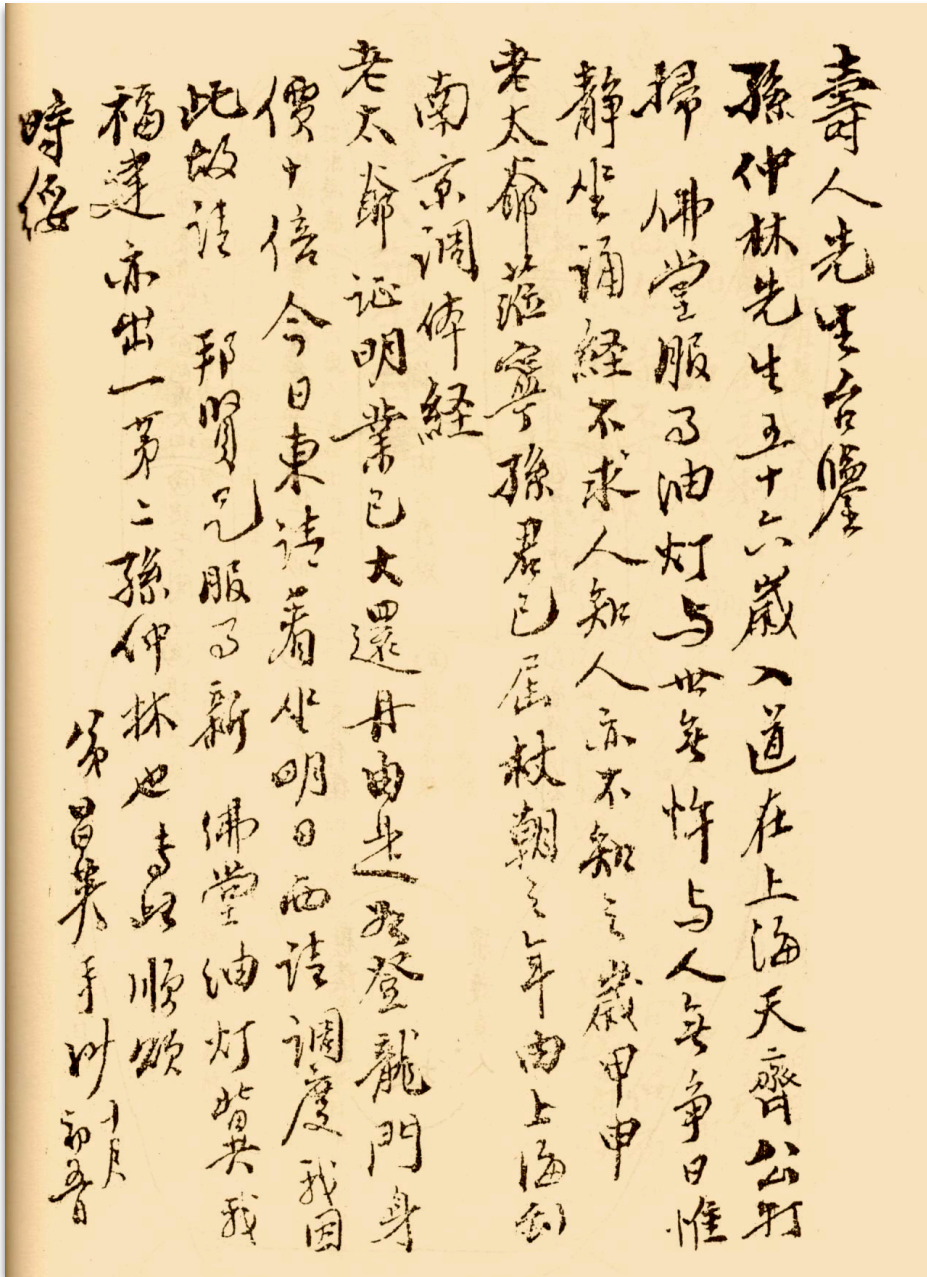 壽人先生台鑒
孫仲林先生五十六歲入道在上海天齊公打
掃 佛堂服多油灯与世無忤与人無争日惟
静坐誦経不求人知人亦不知之歲甲申
老太爺蒞寧孫君已屆杖朝之年由上海到
南京調侍経
老太爺証明業已大還丹由是如登龍門身
價十倍今日東請着坐明日西請調度我因
此故請 邦賢兄服多新 佛堂油灯冀我
福建亦出一第二孫仲林也專此順頌
時綏
弟昌英手抄
十月
初五日